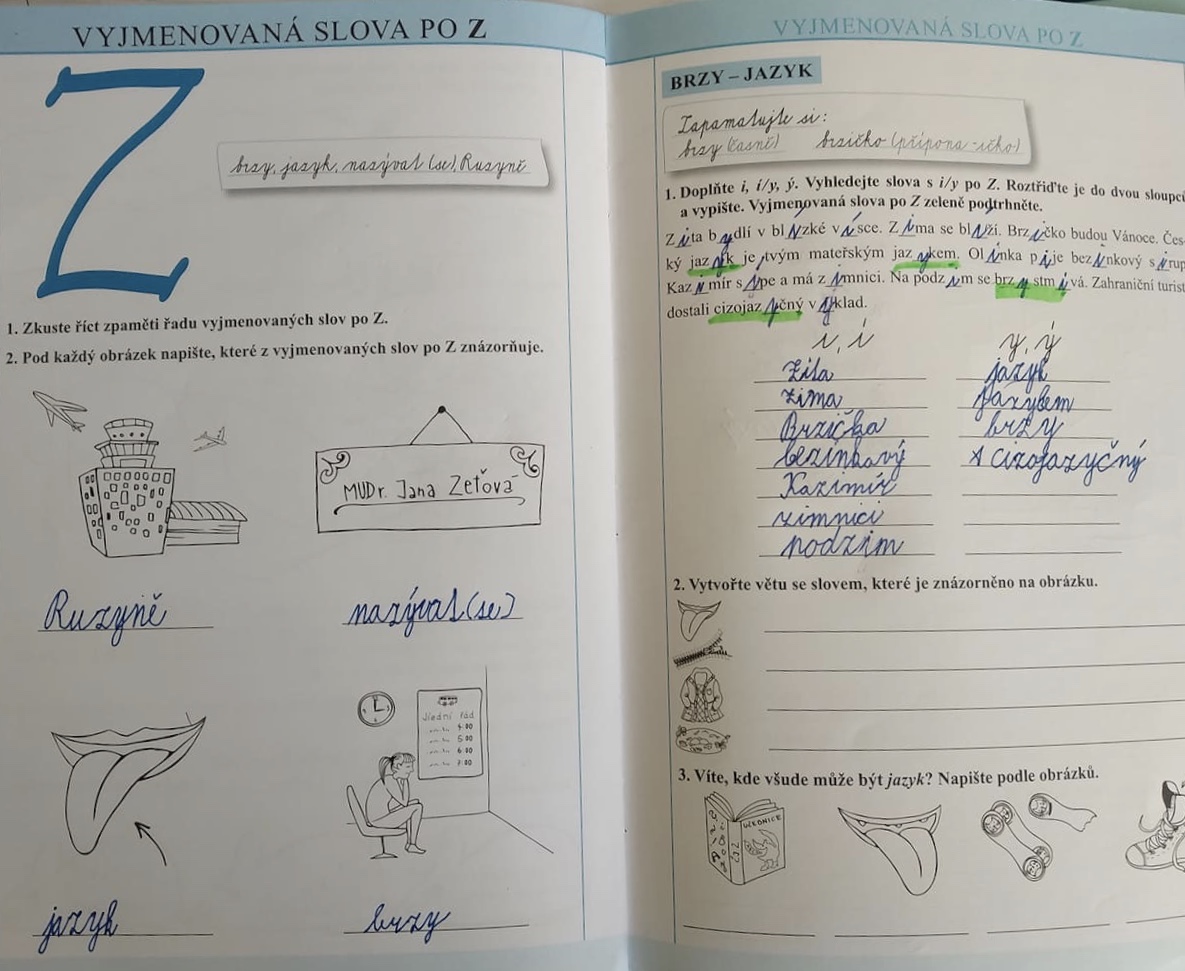 VYJMENOVANÁ SLOVA PO Z
Z
brzy, jazyk, nazývat (se), Ruzyně
1. Zkuste říct zpaměti řadu vyjmenovaných slov po Z.
2. Pod každý obrázek napište, které z vyjmenovaných slov po Z znázorňuje.
MUDr. Jana Zeťová
Ruzyně
nazývat (se)
Jízdní řád
4:00
5:00
6:00
7:00
jazyk
brzy
VYJMENOVANÁ SLOVA PO Z
BRZY – JAZYK
Zapamatujte si:
brzy (časně) brzičko (přípona -ičko)
1. Doplňte i, í/y, ý. Vyhledejte slova s i/y po Z. Roztřiďte je do dvou sloupců
a vypište. Vyjmenovaná slova po Z zeleně podtrhněte.
Zita bydlí v blízké vísce. Zima se blíží. Brzičko budou Vánoce. Čes-
ký jazyk je tvým mateřským jazykem. Olinka pije bezinkový sirup
Kazimír sípe a má zimnici. Na podzim se brzy stmívá. Zahraniční turist
dostali cizojazyčný výklad.
i, í y, ý
Zita jazyk
zima jazykem
Brzička brzy
bezinkový cizojazyčný
Kazimír
zimnici
podzim
2. Vytvořte větu se slovem, které je znázorněno na obrázku.
3. Víte, kde všude může být jazyk? Napište podle obrázků.
UČEBNICE